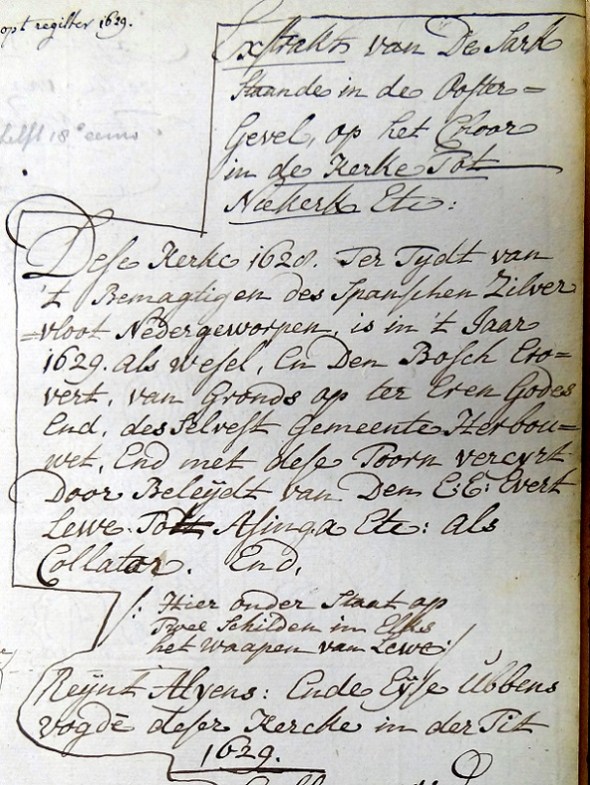 opt register 1629.
helft 18e eeuw
Exstrakt van De Sark
Staande in de Ooster=
Gevel, op het Choor
in de Kerke Tot
Niekerk Etc:
Dese Kerke 1628. Ter Tydt van
't Bemagtigen des Spanschen Zilver
=vloot Nedergeworpen, is in 't Jaar
1629. als Wesel, En Den Bosch Ero=
vert, van Gronds op ter Eren Godes
End, des Selvest Gemeente Herbou=
wet, End met dese Toorn vercyrt
Door Beleijdt van Den E:E: Evert
Lewe Tott Asinga Etc: als
Collator. End,
/: Hier onder Staat op
Twee Schilden in Elks
het Waapen van Lewe:/
Reijnt Alyens: Ende Eijse Ubbens
vogdē deser Kercke in der Tit
1629.